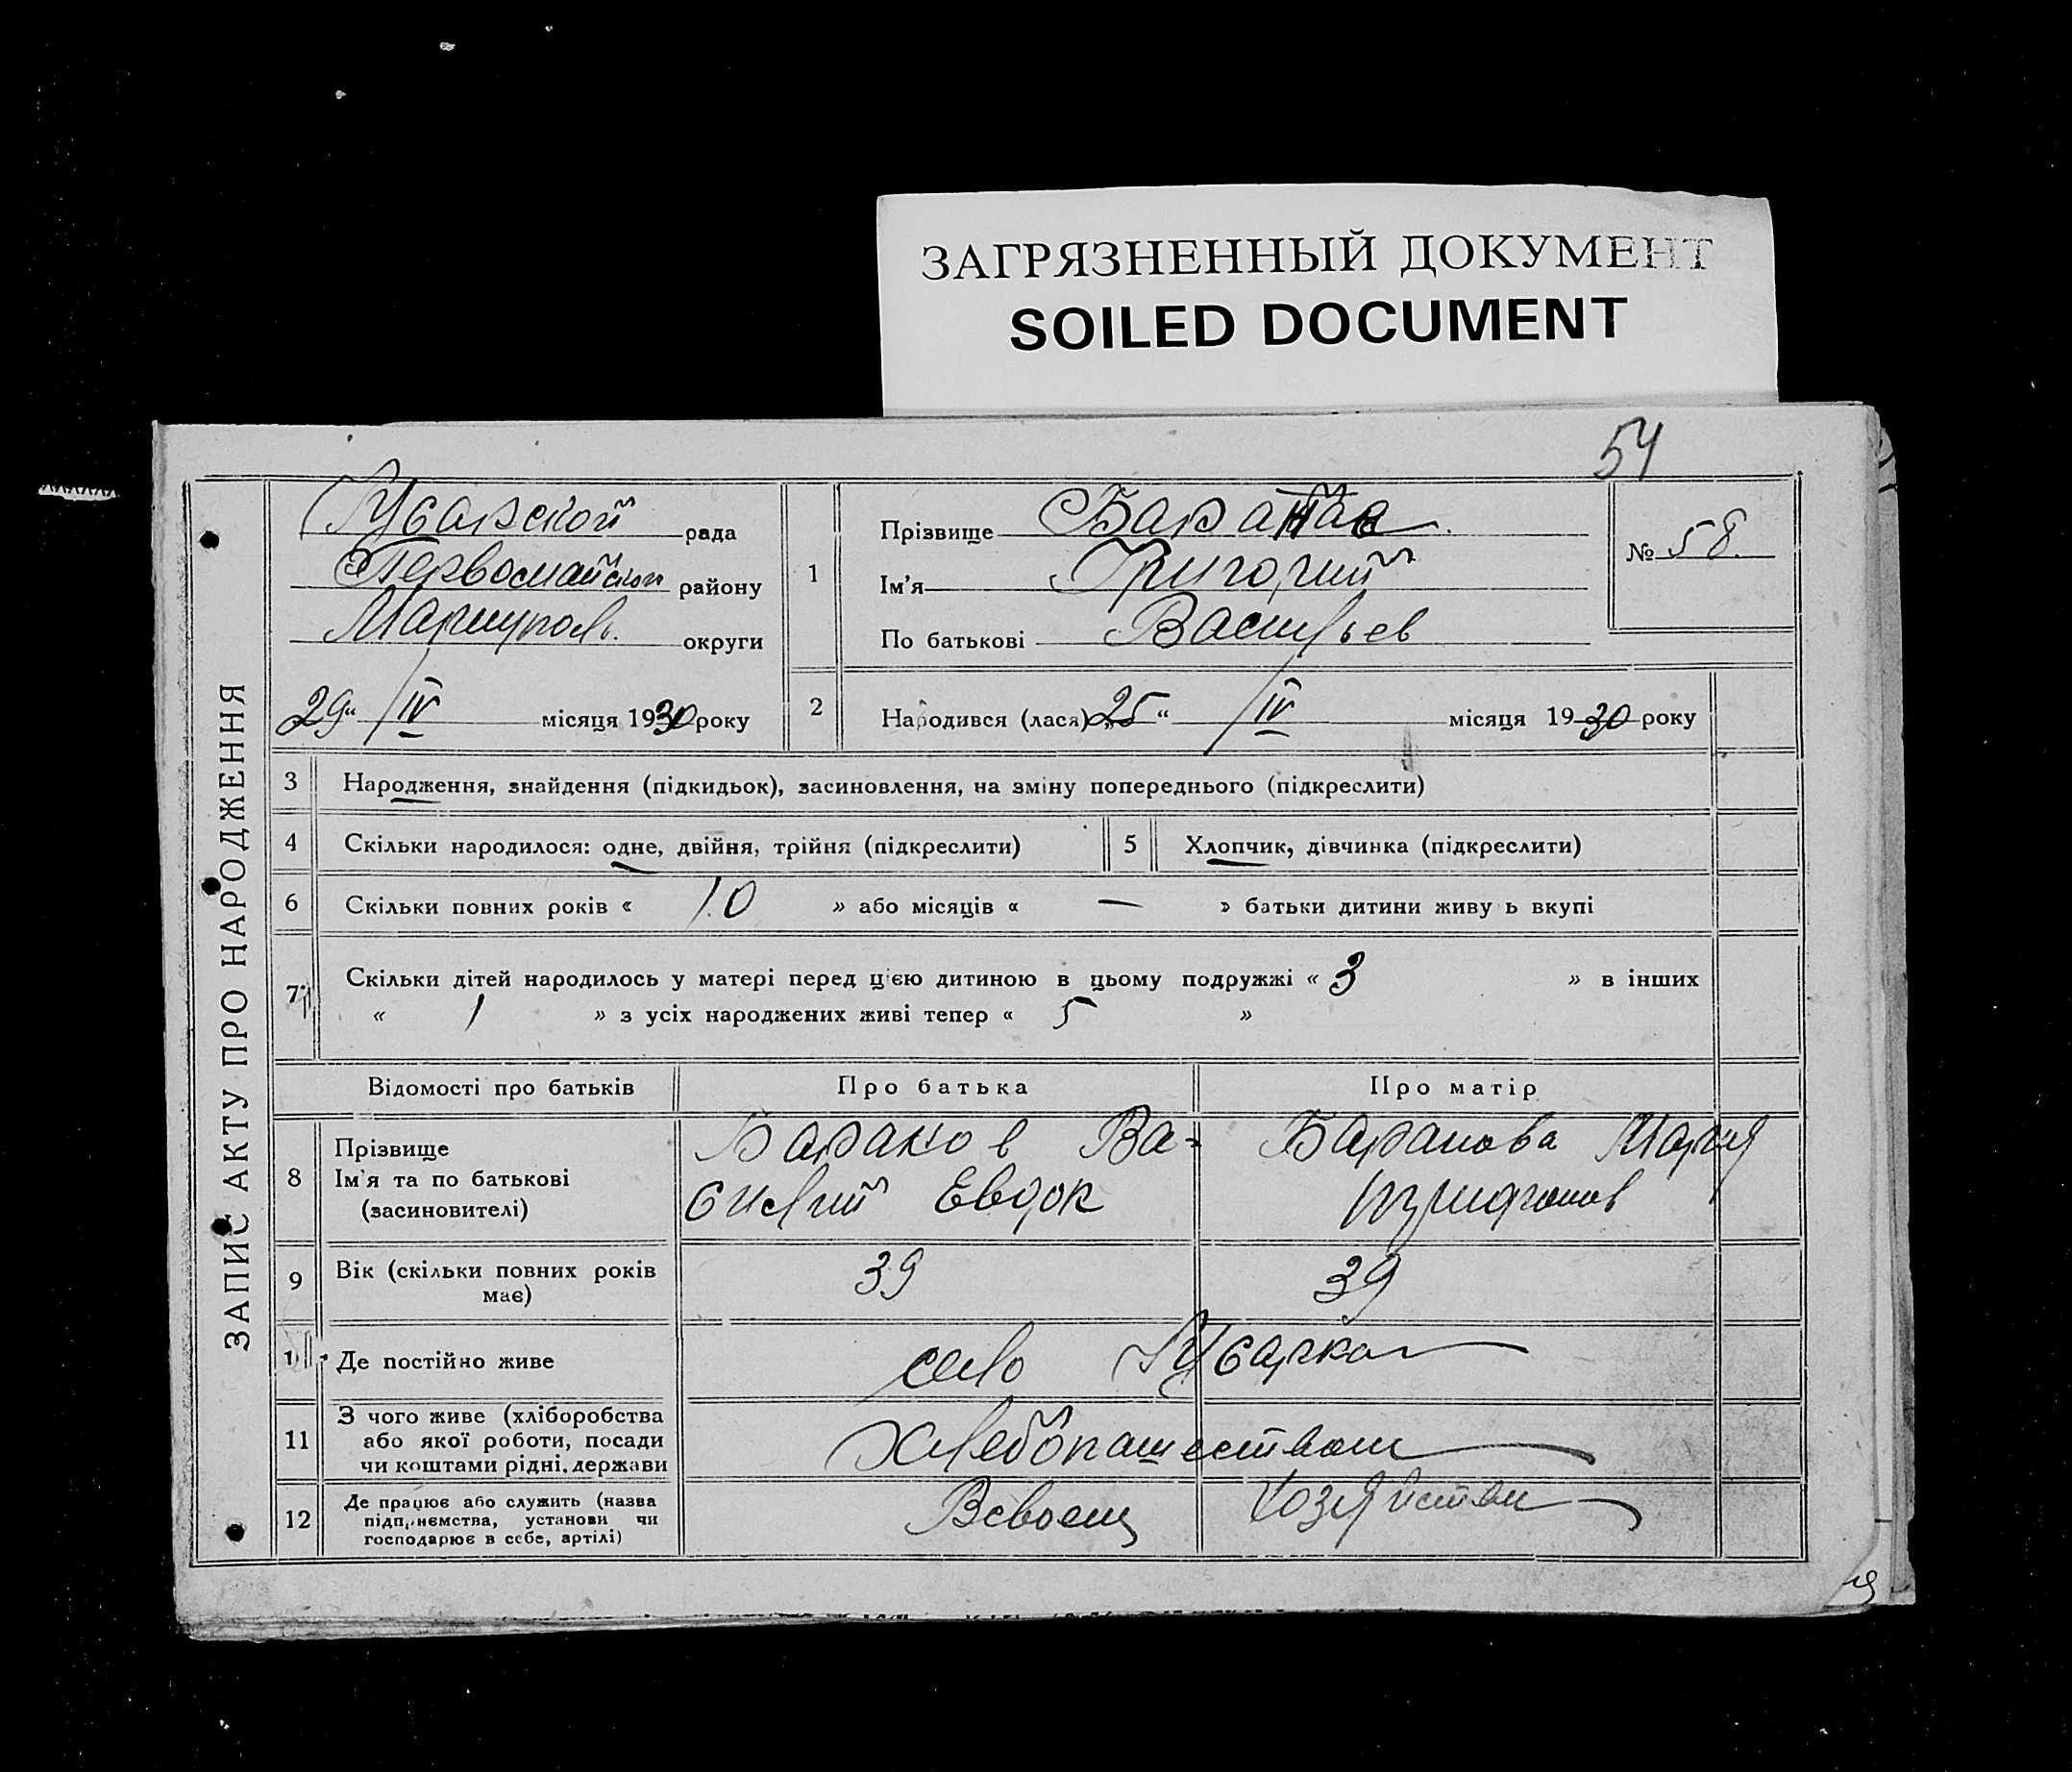 ЗАГРЯЗНЕННЫЙ ДОКУМЕНТ
SOILED DOCUMENT
54
ЗАПИС АКТУ ПРО НАРОДЖЕННЯ
Гусарской рада
Первомайском району
Мариуполь. округи
29 " / IV місяця 1930 року
1
Прізвище
Ім'я Григорий
По батькові Васильев
№ 58.
2 Народився (лася) „25 “ / IV місяця 1930 року
3 Народження, знайдення (підкидьок), засиновлення, на зміну попереднього (підкреслити)
4 Скільки народилося: одне, двійня, трійня (підкреслити) 5 Хлопчик, дівчинка (підкреслити)
6 Скільки повних років « 10 » або місяців « — » батьки дитини живу ь вкупі
7 Скільки дітей народилось у матері перед цією дитиною в цьому подружжі « 3 » в інших
« 1 » з усіх народжених живі тепер « 5 »
Відомості про батьків Про батька Про матір
8 Прізвище
Ім'я та по батькові
(засиновителі)
Баранов Ва-
силий Евдок
Баранова Мария
9 Вік (скільки повних років
має)
39 39
Де постійно живе село Гусарка
11 З чого живе (хліборобства
або якої роботи, посади
чи коштами рідні, держави
Хлебопашеством
12 Де працює або служить (назва
підприємства, установи чи
господарює в себе, артілі)
Всвоем хозяйстви